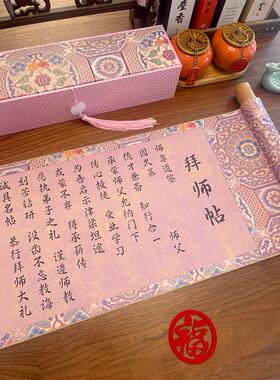 拜师帖
师尊道鉴
因久慕 师父
德才兼备 知行合一
承蒙师父允纳门下
传心授徒 受业学习
为吾启示津梁坦途
或蒙不弃 得承薪传
愿执弟子之礼 谨遵师教
刻苦钻研 没齿不忘教诲
诚具名帖 恭行拜师大礼
福